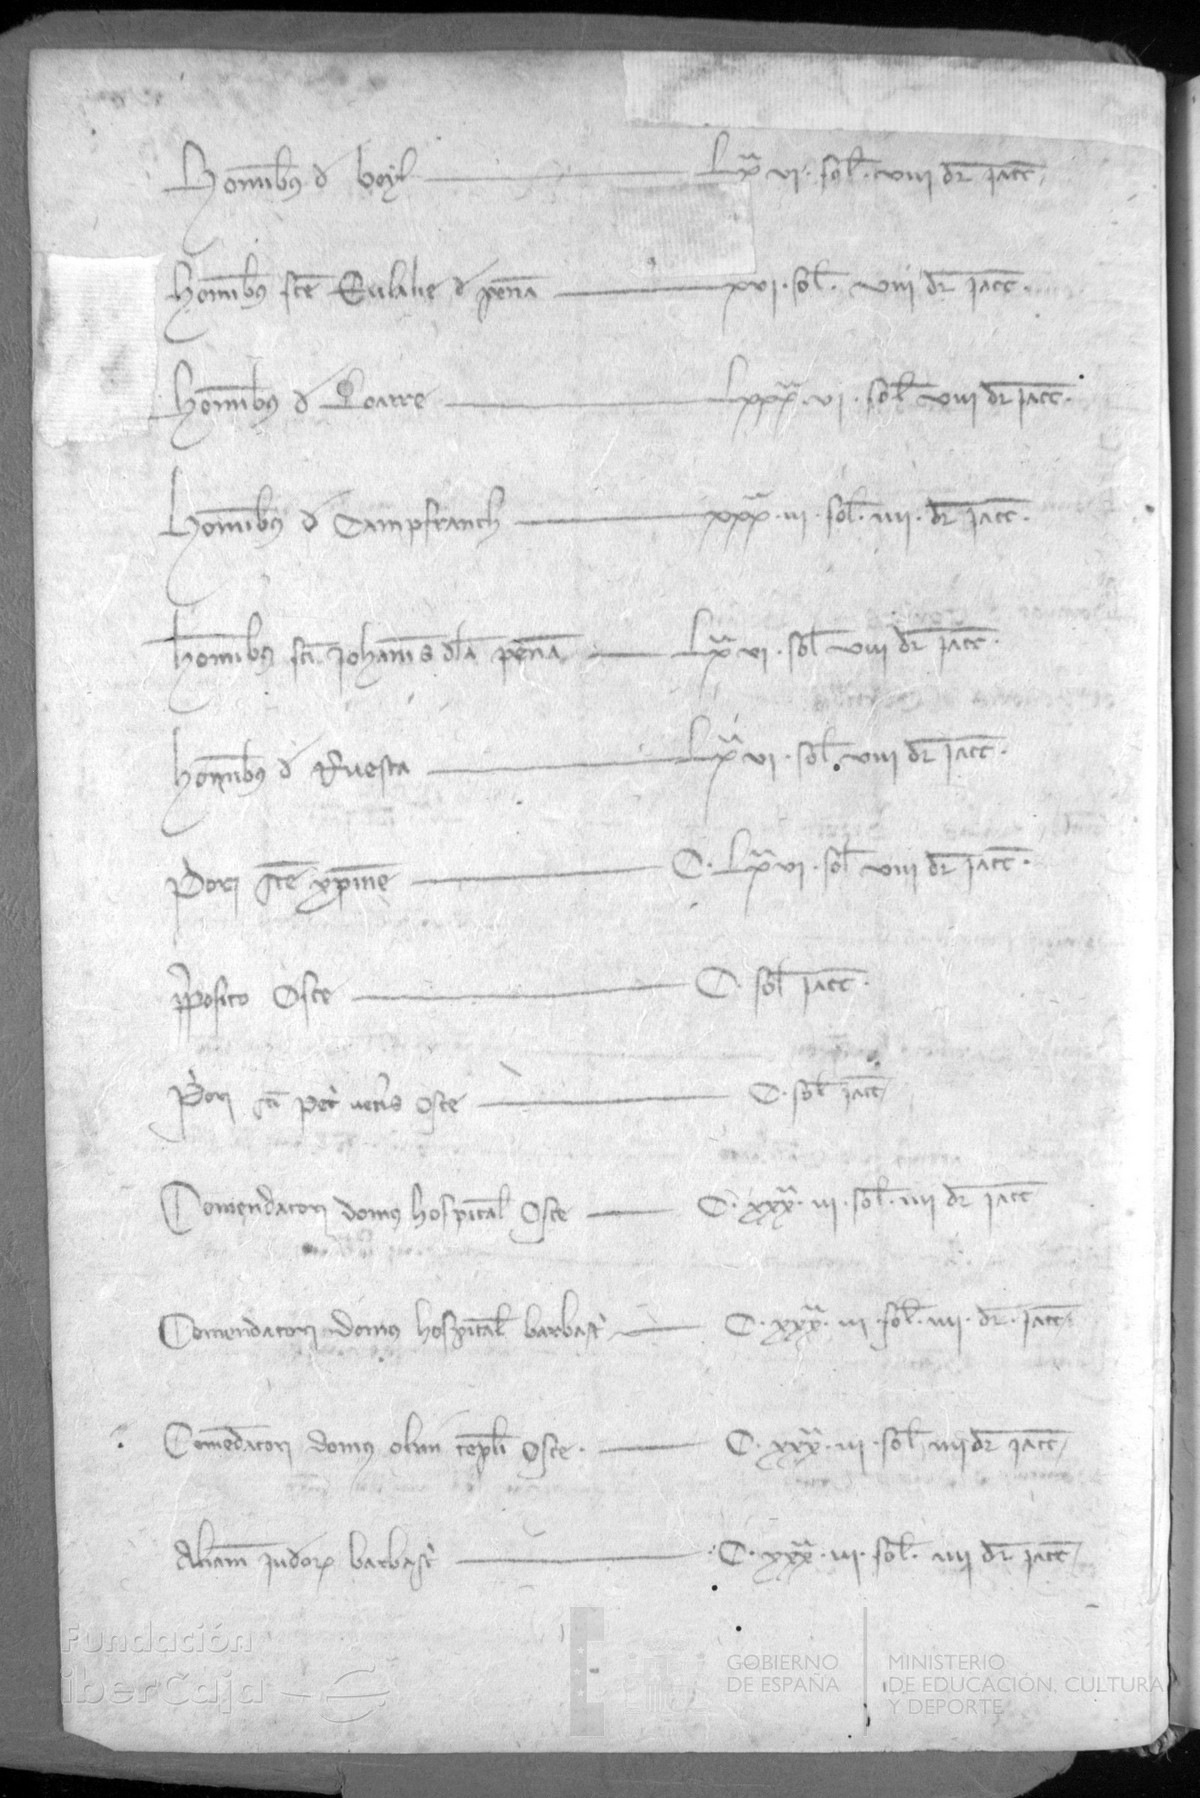 Hom̅ibꝰ đ boyl ——— Lxᵃvi · sol̅ · viii dr̅ iacc̅
Hom̅ibꝰ sc̅e Eulalie đ pen̅a ——— xvi · sol̅ · viii dr̅ iacc̅ ·
Hom̅ibꝰ đ Loarre ——— Lxxxᵃ · vi · sol̅ viii dr̅ iacc̅ ·
Hom̅ibꝰ đ Campfranch ——— xxxᵃ · iii · sol̅ · iiii · dr̅ iacc̅ ·
hom̅ibꝰ sc̅i Johan̅is đla pen̅a ——— Lxᵃ vi · sol̅ viii dr̅ iacc̅ ·
hom̅ibꝰ đ Ruesta ——— Lxᵃ vi · sol̅ · viii dr̅ iacc̅ ·
P̓ori sc̅e xp̅ine ——— C · Lxᵃvi · sol̅ viii dr̅ iacc̅ ·
p̅posito Osce ——— C · sol̅ iacc̅ ·
P̓ori sc̅i pet̓ vet̓is Osce ——— C · sol̅ iacc̅
Comendatori domꝰ hospital̅ Osce ——— C · xxxᵃ · iii · sol̅ · iiii dr̅ iacc̅
Comendatori domꝰ hospital̅ barbast̓ ——— C · xxxᵃ · iii · sol̅ · iiii · dr̅ · iacc̅
Comēdatori domꝰ olim templi Osce · ——— C · xxxᵃ · iii · sol̅ iiii dr̅ iacc̅
Aliam̅ iudeoꝝ barbast̓ ——— · C · xxxᵃ · iii · sol̅ · iiii dr̅ iacc̅
Fundación
iberCaja
GOBIERNO
DE ESPAÑA
MINISTERIO
DE EDUCACIÓN, CULTURA
Y DEPORTE